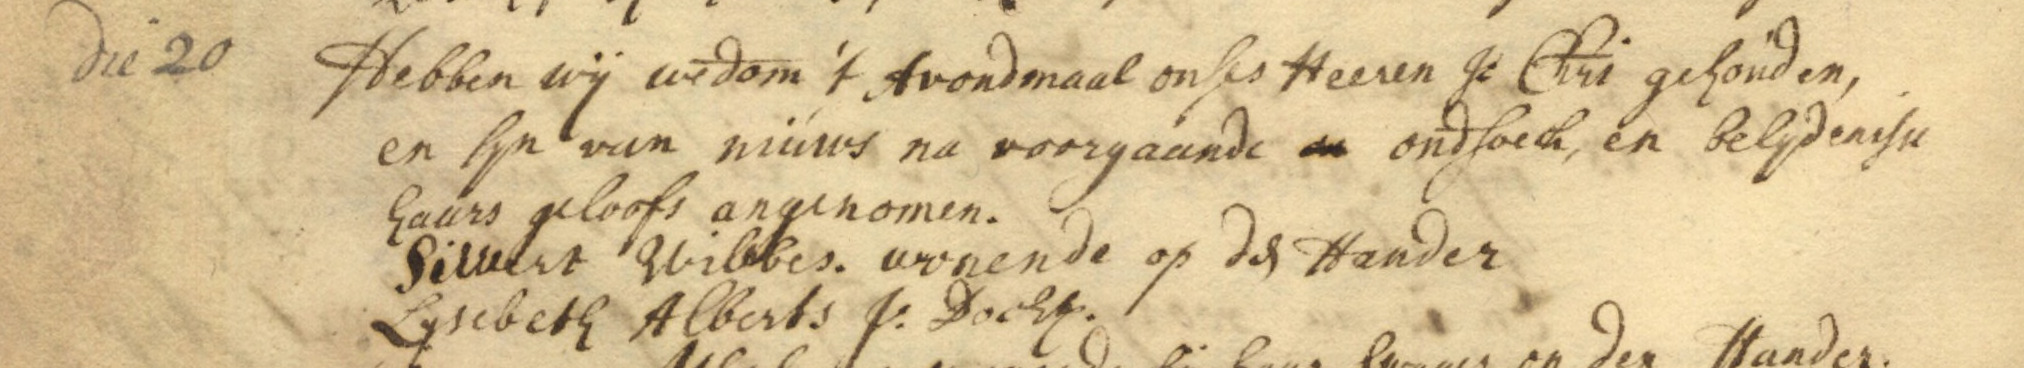 die 20 Hebben wij wedom 't Avondmaal onses Heeren Js Chri gehouden,
en syn van nieuws na voorgaande ondsoeck, en belydenisse
haars geloofs angenomen.
Siwert Wibbes. wonende op des Hander
Lysebeth Alberts J. Docht.
haar op den Hander.